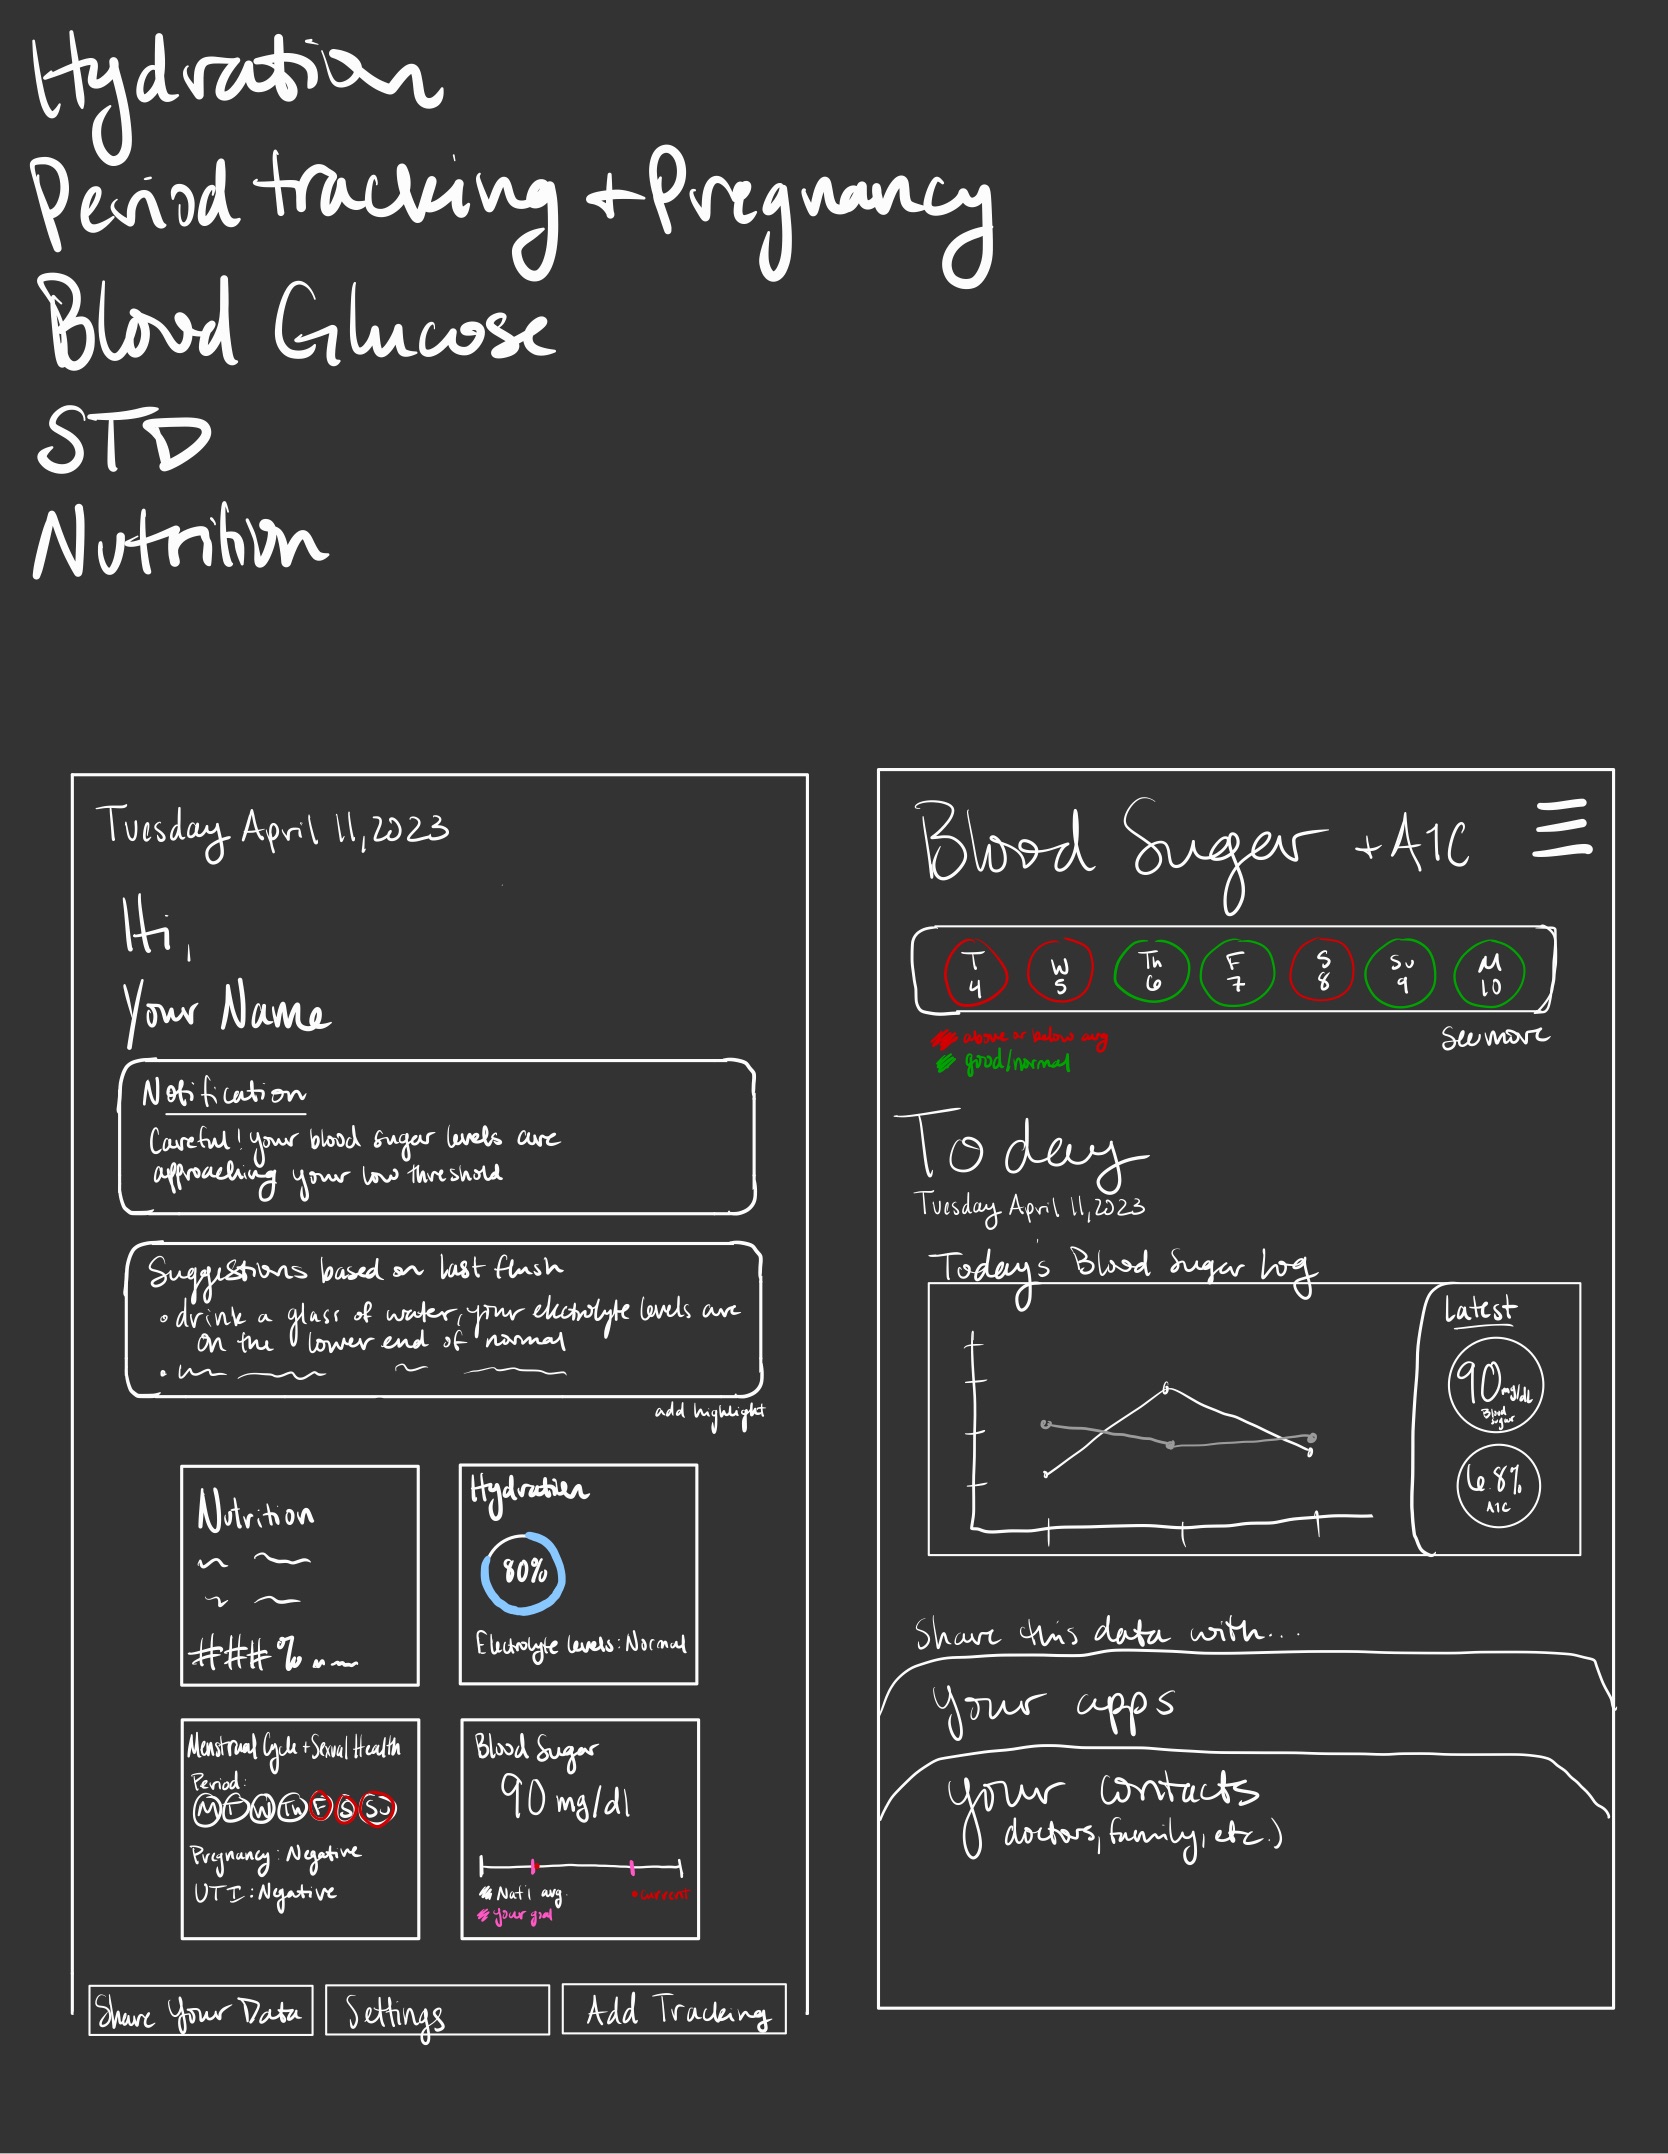 Hydration
Period tracking + Pregnancy
Blood Glucose
STD
Nutrition
Tuesday April 11, 2023
Hi,
Your Name
Notification
Careful! your blood sugar levels are
approaching your low threshold
Suggestions based on last flush
• drink a glass of water, your electrolyte levels are
on the lower end of normal
add highlight
Nutrition
###%
Hydration
80%
Electrolyte levels: Normal
Menstrual Cycle + Sexual Health
Period:
M T W Th F S Su
Pregnancy: Negative
UTI: Negative
Blood Sugar
90 mg/dl
Nat'l avg.
• current
your goal
Share Your Data
Settings
Add Tracking
Blood Sugar + A1C
T W Th F S Su M
4 5 6 7 8 9 10
above or below avg
good/normal
See more
Today
Tuesday April 11, 2023
Today's Blood Sugar Log
Latest
90 mg/dl
Blood
Sugar
6.8%
A1C
Share this data with...
Your apps
your contacts
doctors, family, etc.)